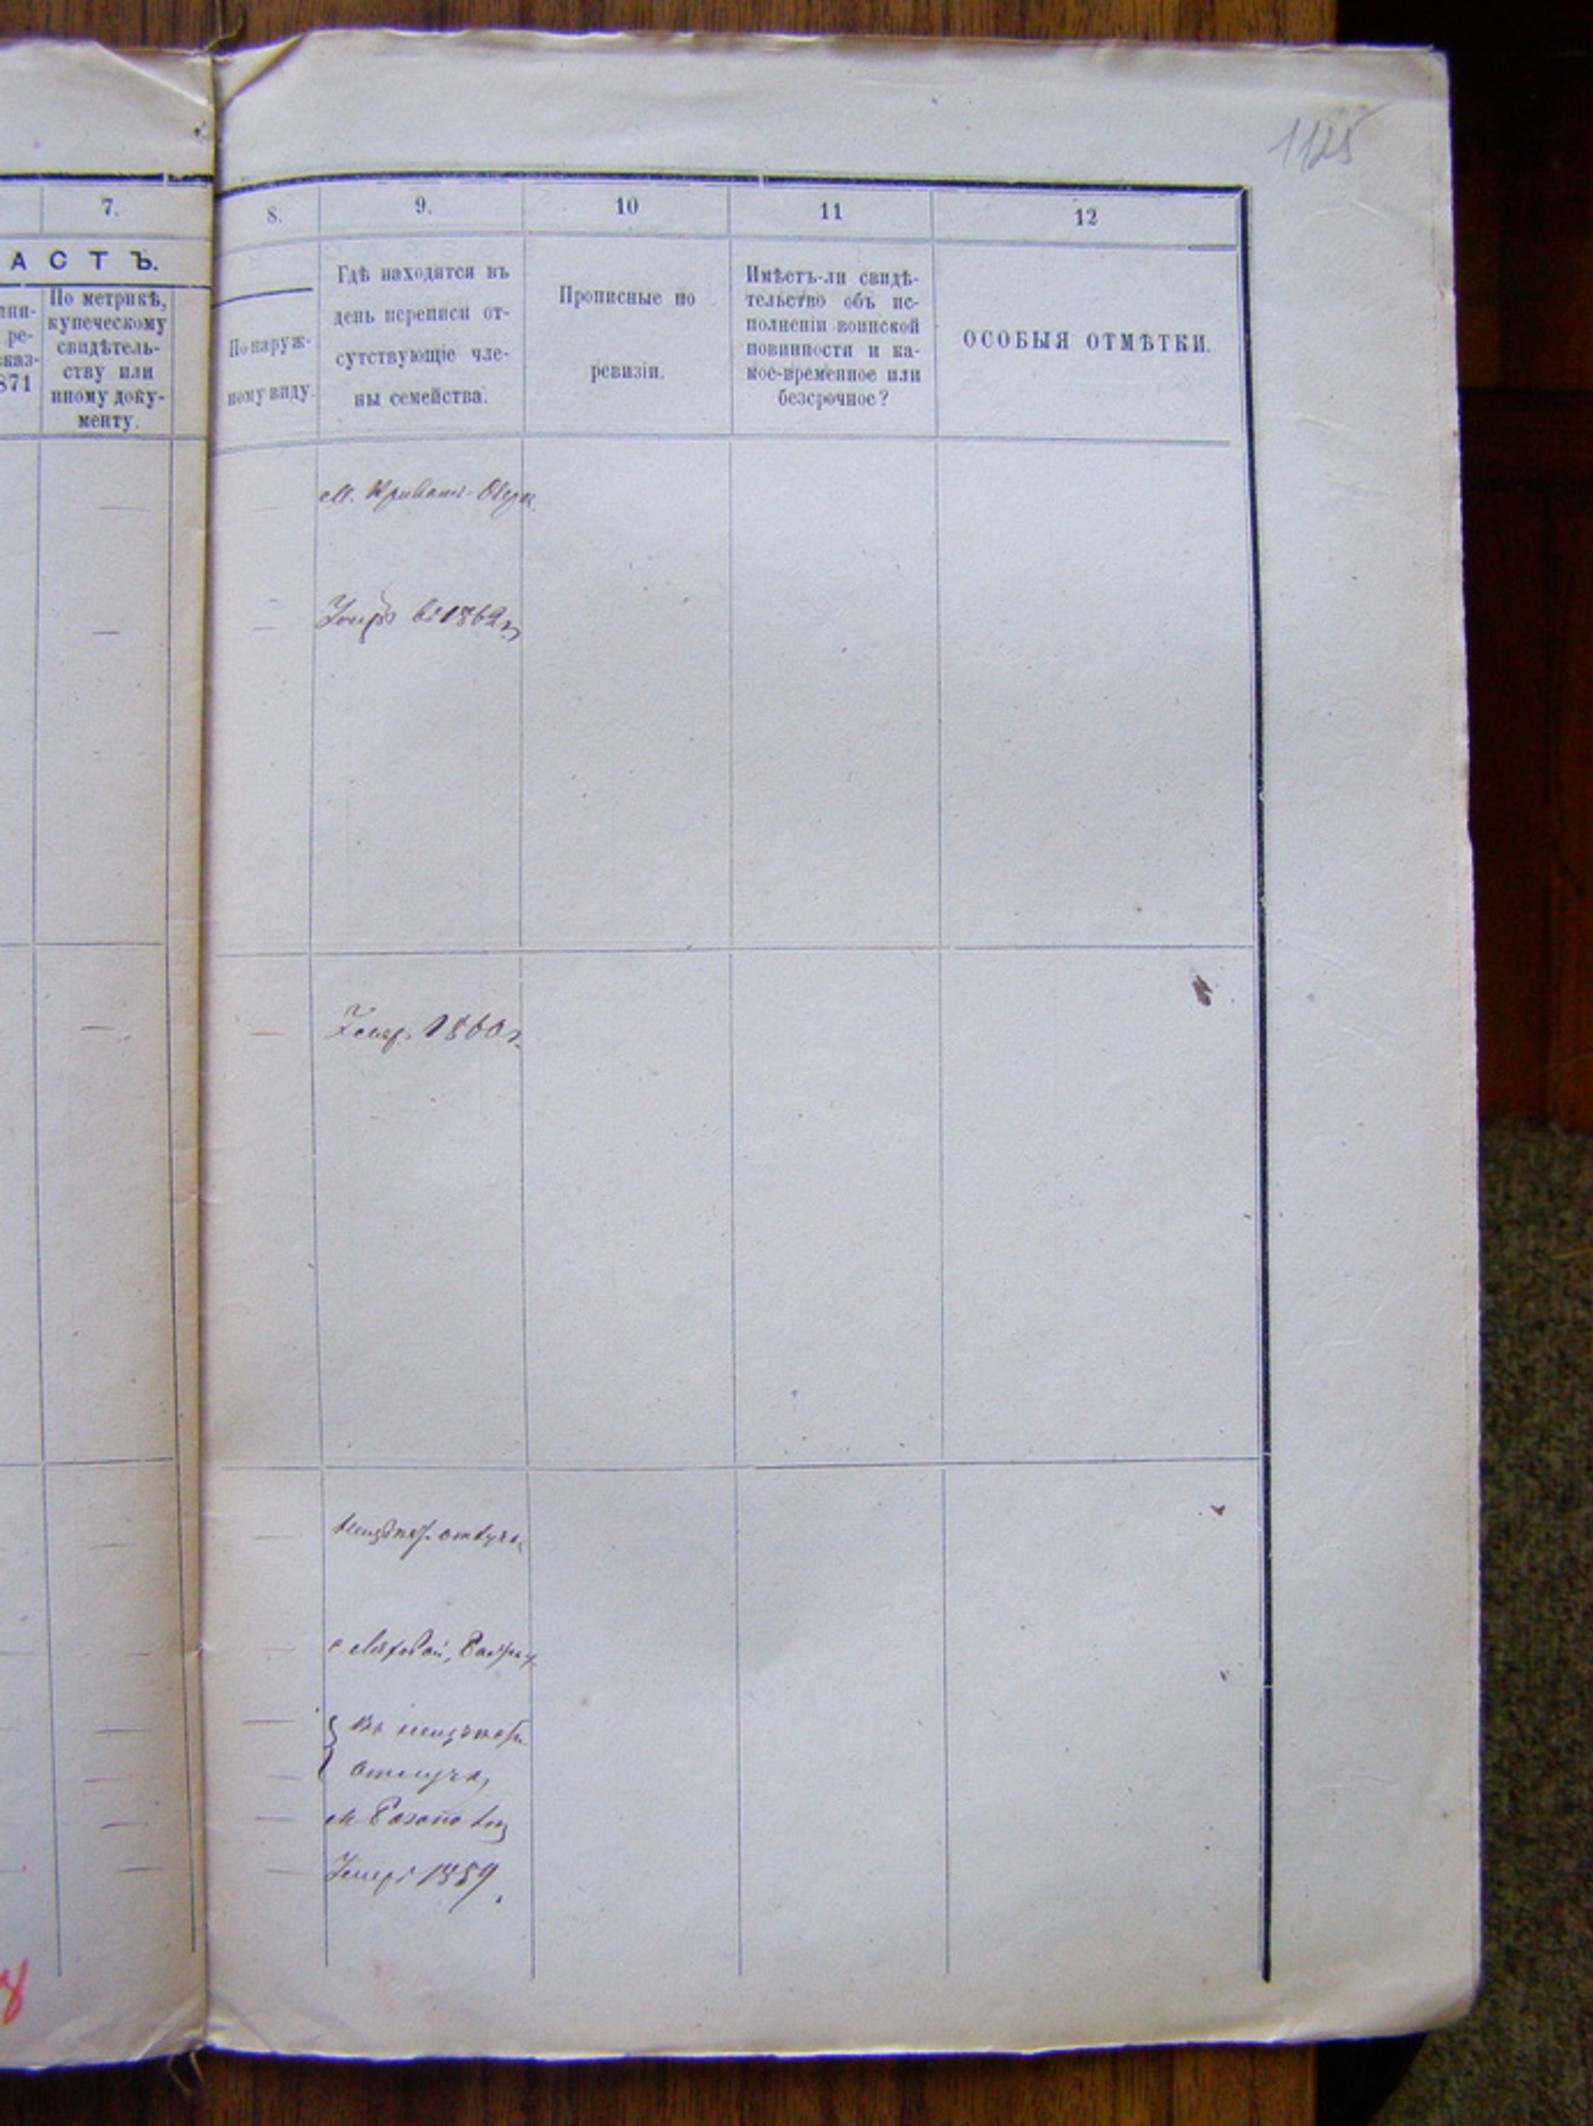 1125
7.
8.
9.
10
11
12
А С Т Ъ.
ре-
сказ-
871
По метрикѣ,
купеческому
свидѣтель-
ству или
иному доку-
менту.
По наруж-
ному виду.
Гдѣ находятся въ
день переписи от-
сутствующіе чле-
ны семейства.
Прописные по
ревизіи.
Имѣетъ-ли свидѣ-
тельство объ ис-
полненіи воинской
повинности и ка-
кое-временное или
безсрочное?
ОСОБЫЯ ОТМѢТКИ.
м. Кривое-Озеро
Умеръ въ 1862 г.
Умеръ 1860 г.
Въ неизвѣстн.
отлучкѣ
Умеръ 1859
8